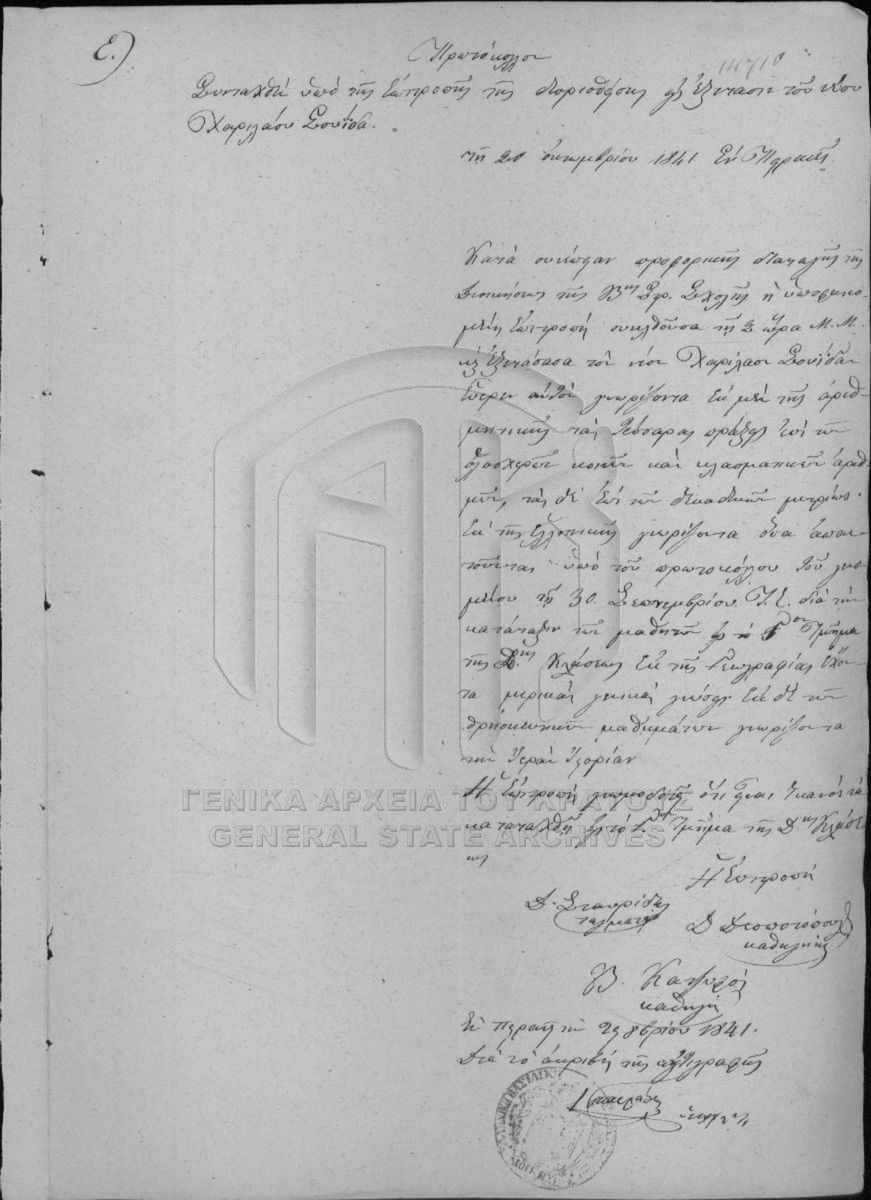 Ε.)
Πρωτόκολλον
14710
Συνταχθὲν ὑπὸ τῆς Ἐπιτροπῆς τῆς διορισθείσης εἰς ἐξέτασιν τοῦ νέου
Χαριλάου Σουΐδα.
τῇ 20 Ὀκτωμβρίου 1841 Ἐν Πειραιεῖ.
Κατὰ συνέπειαν προφορικῆς διαταγῆς τῆς
Διοικήσεως τῆς Βης Στρ. Σχολῆς ἡ ὑποφαινο-
μένη Ἐπιτροπὴ συνελθοῦσα τῇ 3 ὥρᾳ Μ.Μ.
κ ἐξετάσασα τὸν νέον Χαρίλαον Σουΐδαν
εὗρεν αὐτὸν γνωρίζοντα ἐκ μὲν τῆς ἀριθ-
μητικῆς τὰς τέσσαρας πράξεις ἐπὶ τῶν
ὁλοσχερῶν κοινῶν καὶ κλασματικῶν ἀριθ-
μῶν, τὰς δὲ ἐπὶ τῶν δεκαδικῶν μετρίως.
Ἐκ τῆς Ἑλληνικῆς γνωρίζοντα ὅσα ἀπαι-
τοῦνται ὑπὸ τοῦ πρωτοκόλου τοῦ
τῆς 30 Σεπτεμβρίου Ἰ. Ἔ. διὰ τὴν
κατάταξιν τῶν μαθητῶν εἰς τὸ Γον Τμῆμα
τῆς Δης Κλάσεως Ἐκ τῆς Γεωγραφίας ἔχον-
τα μερικὰς γενικὰς γνώσεις Ἐκ δὲ τῶν
θρησκευτικῶν μαθημάτων γνωρίζοντα
τὴν Ἱερὰν Ἱστορίαν
Ἡ Ἐπιτροπὴ γνωμοδοτεῖ ὅτι εἶναι ἱκανὸς νὰ
καταταχθῇ εἰς τὸ Γον Τμῆμα τῆς Δης Κλάσε-
ως
Ἡ Ἐπιτροπὴ
Δ. Σταυρίδης
Δ Δεσποτόπουλος
καθηγητής
Β.
καθηγη
Ἐν Πειραιεῖ τῇ 29 8βρίου 1841.
Διὰ τὸ ἀκριβὲς τῆς ἀντιγραφῆς
ΓΕΝΙΚΑ ΑΡΧΕΙΑ ΤΟΥ ΚΡΑΤΟΥΣ
GENERAL STATE ARCHIVES